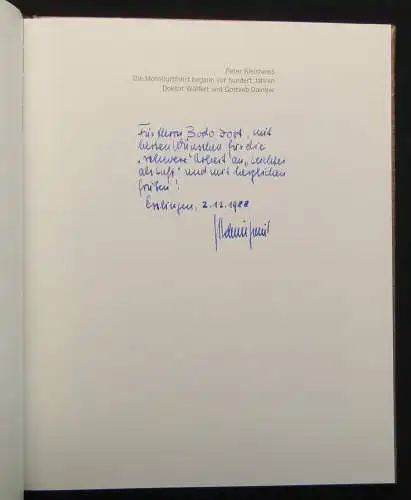 Peter Kleinheins
Die Motorluftfahrt begann vor hundert Jahren
Doktor Wölfert und Gottlieb Daimler
Für Herrn Bodo Jost, mit
besten Wünschen für die
„schwere" Arbeit an „Leichter
als Luft" und mit herzlichen
Grüßen!
Esslingen, 2.12.1988